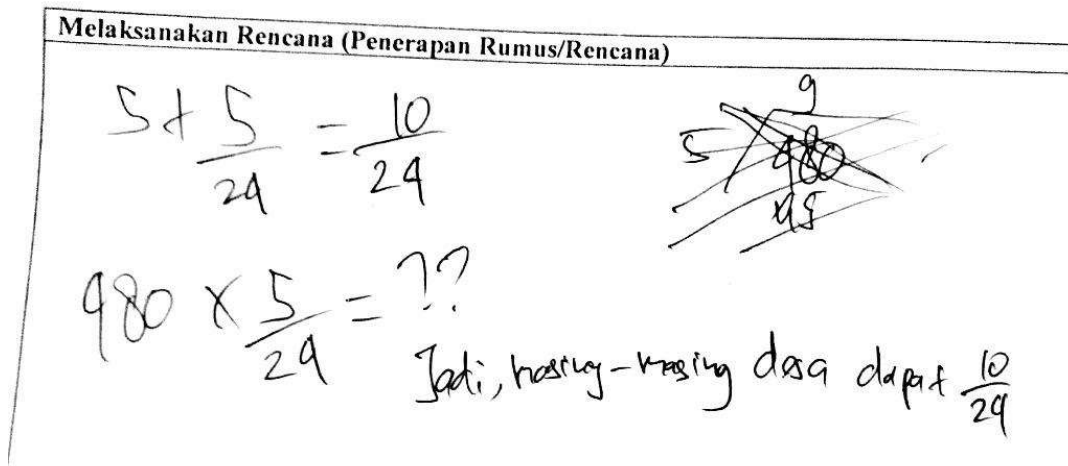 Melaksanakan Rencana (Penerapan Rumus/Rencana)
5 + 5/24 = 10/24
9
5 480
45
480 × 5/24 = ??
Jadi, masing-masing desa dapat 10/24